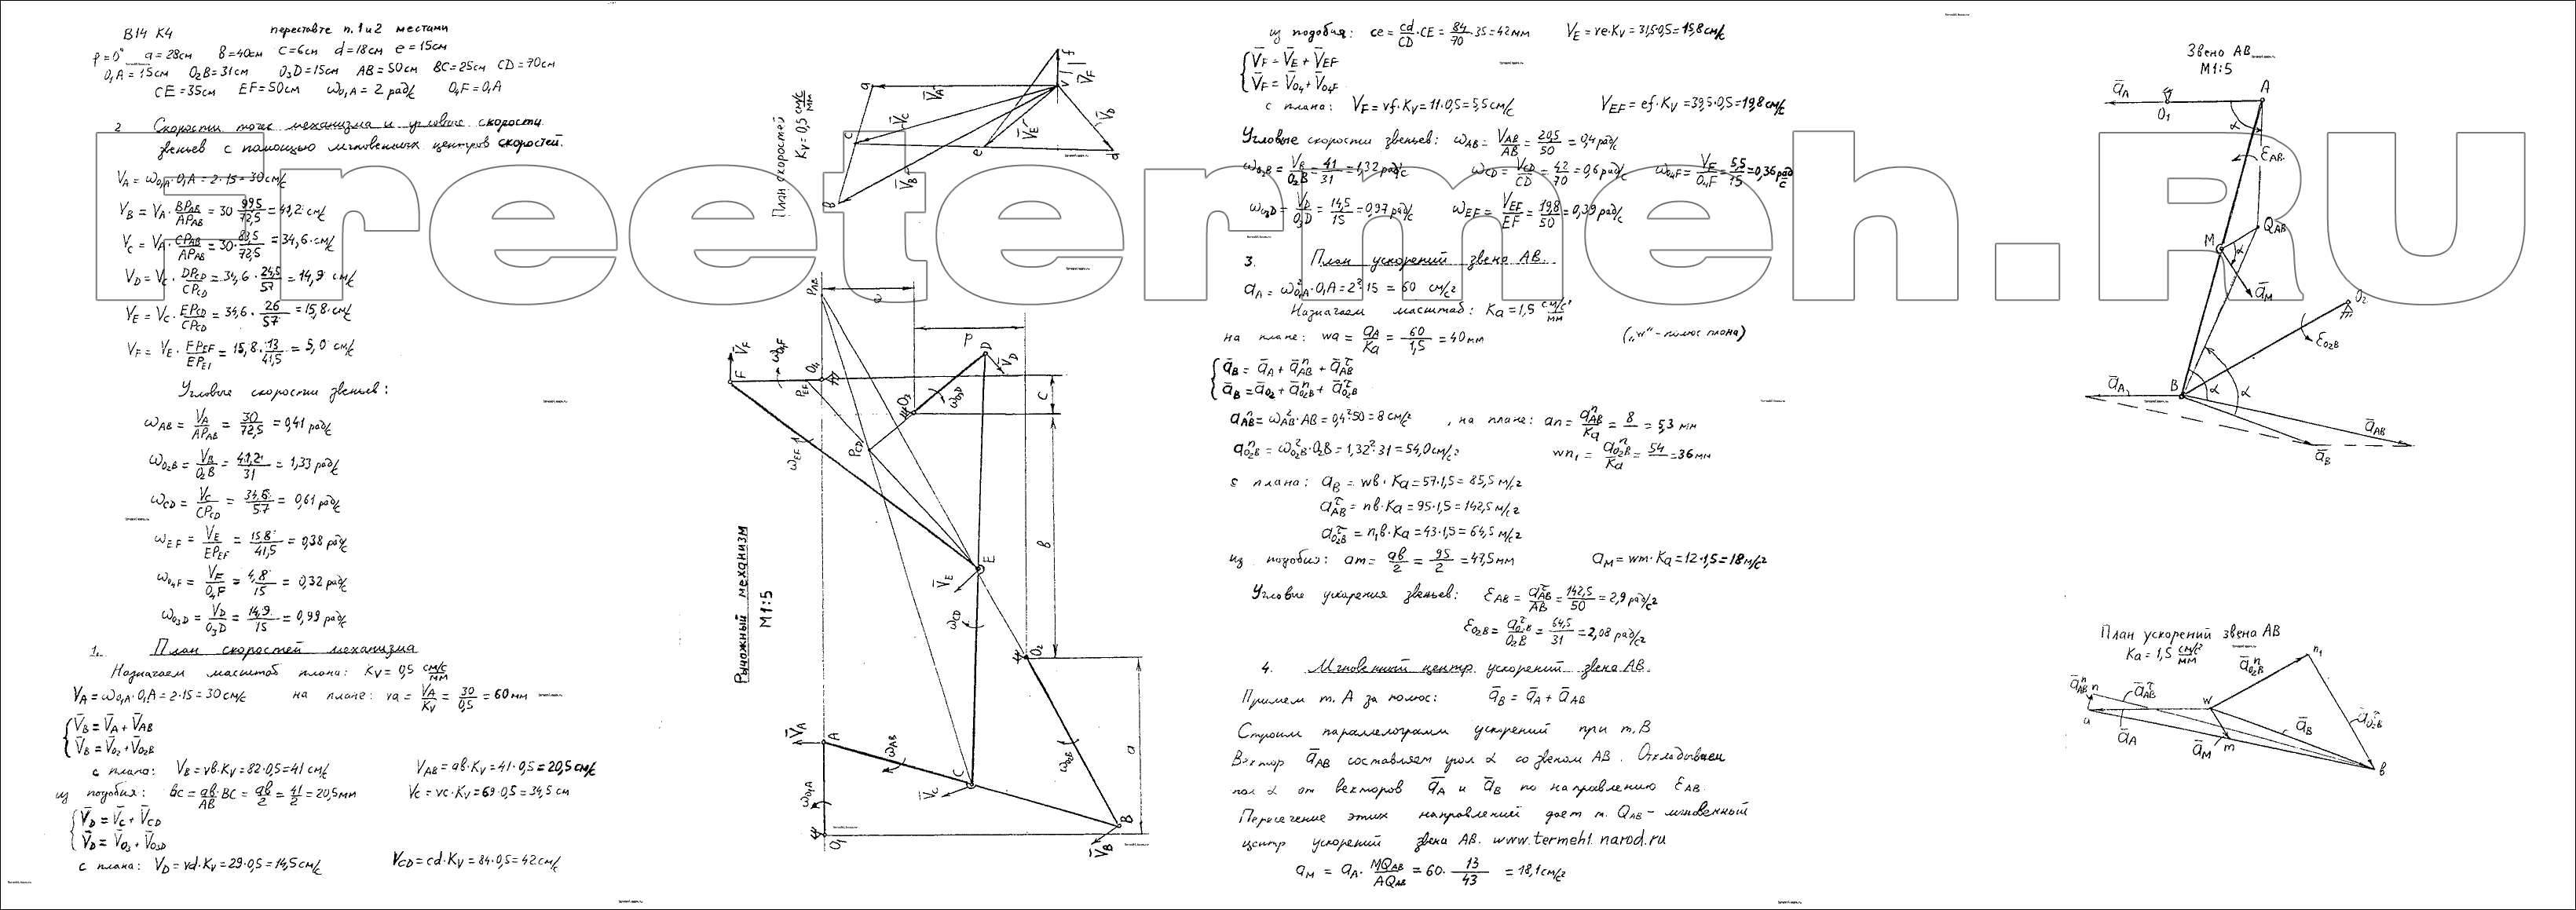 В14 К4
переставте п. 1 и 2 местами
ρ=0° a=28см в=40см C=6см d=18см e=15см
O₁A=15см O₂B=31см O₃D=15см AB=50см BC=25см CD=70см
CE=35см EF=50см ω₀₁A=2 рад/с O₄F=O₁A
2 Скорости точек механизма и угловые скорости
звеньев с помощью мгновенных центров скоростей.
V_A = ω₀₁A·O₁A = 2·15 = 30 см/с
V_B = V_A · BP_AB/AP_AB = 30 · 99,5/72,5 = 41,2 см/с
V_C = V_A · CP_AB/AP_AB = 30 · 83,5/72,5 = 34,6 см/с
V_D = V_C · DP_CD/CP_CD = 34,6 · 24,5/57 = 14,9 см/с
V_E = V_C · EP_CD/CP_CD = 34,6 · 26/57 = 15,8 см/с
V_F = V_E · FP_EF/EP_EF = 15,8 · 13/41,5 = 5,0 см/с
Угловые скорости звеньев:
ω_AB = V_A/AP_AB = 30/72,5 = 0,41 рад/с
ω_O₂B = V_B/O₂B = 41,2/31 = 1,33 рад/с
ω_CD = V_C/CP_CD = 34,6/57 = 0,61 рад/с
ω_EF = V_E/EP_EF = 15,8/41,5 = 0,38 рад/с
ω_O₄F = V_F/O₄F = 4,8/15 = 0,32 рад/с
ω_O₃D = V_D/O₃D = 14,9/15 = 0,99 рад/с
1. План скоростей механизма
Назначаем масштаб плана: K_V = 0,5 см/с/мм
V_A = ω₀₁A·O₁A = 2·15 = 30 см/с на плане: va = V_A/K_V = 30/0,5 = 60 мм
V̄_B = V̄_A + V̄_AB
V̄_B = V̄_O₂ + V̄_O₂B
с плана: V_B = vв·K_V = 82·0,5 = 41 см/с V_AB = aв·K_V = 41·0,5 = 20,5 см/с
из подобия: вc = aв/AB·BC = aв/2 = 41/2 = 20,5 мм V_C = vc·K_V = 69·0,5 = 34,5 см
V̄_D = V̄_C + V̄_CD
V̄_D = V̄_O₃ + V̄_O₃D
с плана: V_D = vd·K_V = 29·0,5 = 14,5 см/с V_CD = cd·K_V = 84·0,5 = 42 см/с
План скоростей
K_V = 0,5 см/с/мм
f
V
V̄_F
a
V̄_A
c
V̄_C
V̄_E
V̄_D
e
d
V̄_B
в
Рычажный механизм
М1:5
P_AB
e
ρ
F
V̄_F
ω_O₄F
O₄
P_EF
D
V̄_D
ω_O₃D
O₃
c
P_CD
ω_EF
в
E
V̄_E
ω_CD
O₂
V̄_A
A
ω_AB
ω_O₂B
a
C
V̄_C
ω_O₁A
O₁
B
V̄_B
из подобия: ce = cd/CD·CE = 84/70·35 = 42 мм V_E = ve·K_V = 31,5·0,5 = 15,8 см/с
V̄_F = V̄_E + V̄_EF
V̄_F = V̄_O₄ + V̄_O₄F
с плана: V_F = vf·K_V = 11·0,5 = 5,5 см/с V_EF = ef·K_V = 39,5·0,5 = 19,8 см/с
Угловые скорости звеньев: ω_AB = V_AB/AB = 20,5/50 = 0,4 рад/с
ω_O₂B = V_B/O₂B = 41/31 = 1,32 рад/с ω_CD = V_CD/CD = 42/70 = 0,6 рад/с ω_O₄F = V_F/O₄F = 5,5/15 = 0,36 рад/с
ω_O₃D = V_D/O₃D = 14,5/15 = 0,97 рад/с ω_EF = V_EF/EF = 19,8/50 = 0,39 рад/с
3. План ускорений звена AB.
a_A = ω²_O₁A·O₁A = 2²·15 = 60 см/с²
Назначаем масштаб: Ka = 1,5 см/с²/мм
на плане: wa = a_A/Ka = 60/1,5 = 40 мм („w“ - полюс плана)
ā_B = ā_A + āⁿ_AB + ā^τ_AB
ā_B = ā_O₂ + āⁿ_O₂B + ā^τ_O₂B
aⁿ_AB = ω²_AB·AB = 0,4²·50 = 8 см/с² , на плане: an = aⁿ_AB/Ka = 8/ = 5,3 мм
aⁿ_O₂B = ω²_O₂B·O₂B = 1,32²·31 = 54,0 см/с² wn₁ = aⁿ_O₂B/Ka = 54/ = 36 мм
с плана: a_B = wв·Ka = 57·1,5 = 85,5 м/с²
a^τ_AB = nв·Ka = 95·1,5 = 142,5 м/с²
a^τ_O₂B = n₁в·Ka = 43·1,5 = 64,5 м/с²
из подобия: am = aв/2 = 95/2 = 47,5 мм a_M = wm·Ka = 12·1,5 = 18 м/с²
Угловые ускорения звеньев: ε_AB = a^τ_AB/AB = 142,5/50 = 2,9 рад/с²
ε_O₂B = a^τ_O₂B/O₂B = 64,5/31 = 2,08 рад/с²
4. Мгновенный центр ускорений звена AB.
Примем т. A за полюс: ā_B = ā_A + ā_AB
Строим параллелограмм ускорений при т. B
Вектор ā_AB составляет угол α со звеном AB. Откладываем
угол α от векторов ā_A и ā_B по направлению ε_AB.
Пересечение этих направлений дает т. Q_AB - мгновенный
центр ускорений звена AB. www.termeh1.narod.ru
a_M = a_A · MQ_AB/AQ_AB = 60 · 13/43 = 18,1 см/с²
Звено AB
М1:5
ā_A
O₁
A
α
ε_AB
Q_AB
M
α
ā_M
O₂
ε_O₂B
ā_A
B
α
α
ā_AB
ā_B
План ускорений звена AB
Ka = 1,5 см/с²/мм
āⁿ_O₂B
n₁
āⁿ_AB
n
ā^τ_AB
w
a
ā_A
ā_M
m
ā_B
ā^τ_O₂B
в
freetermeh.RU